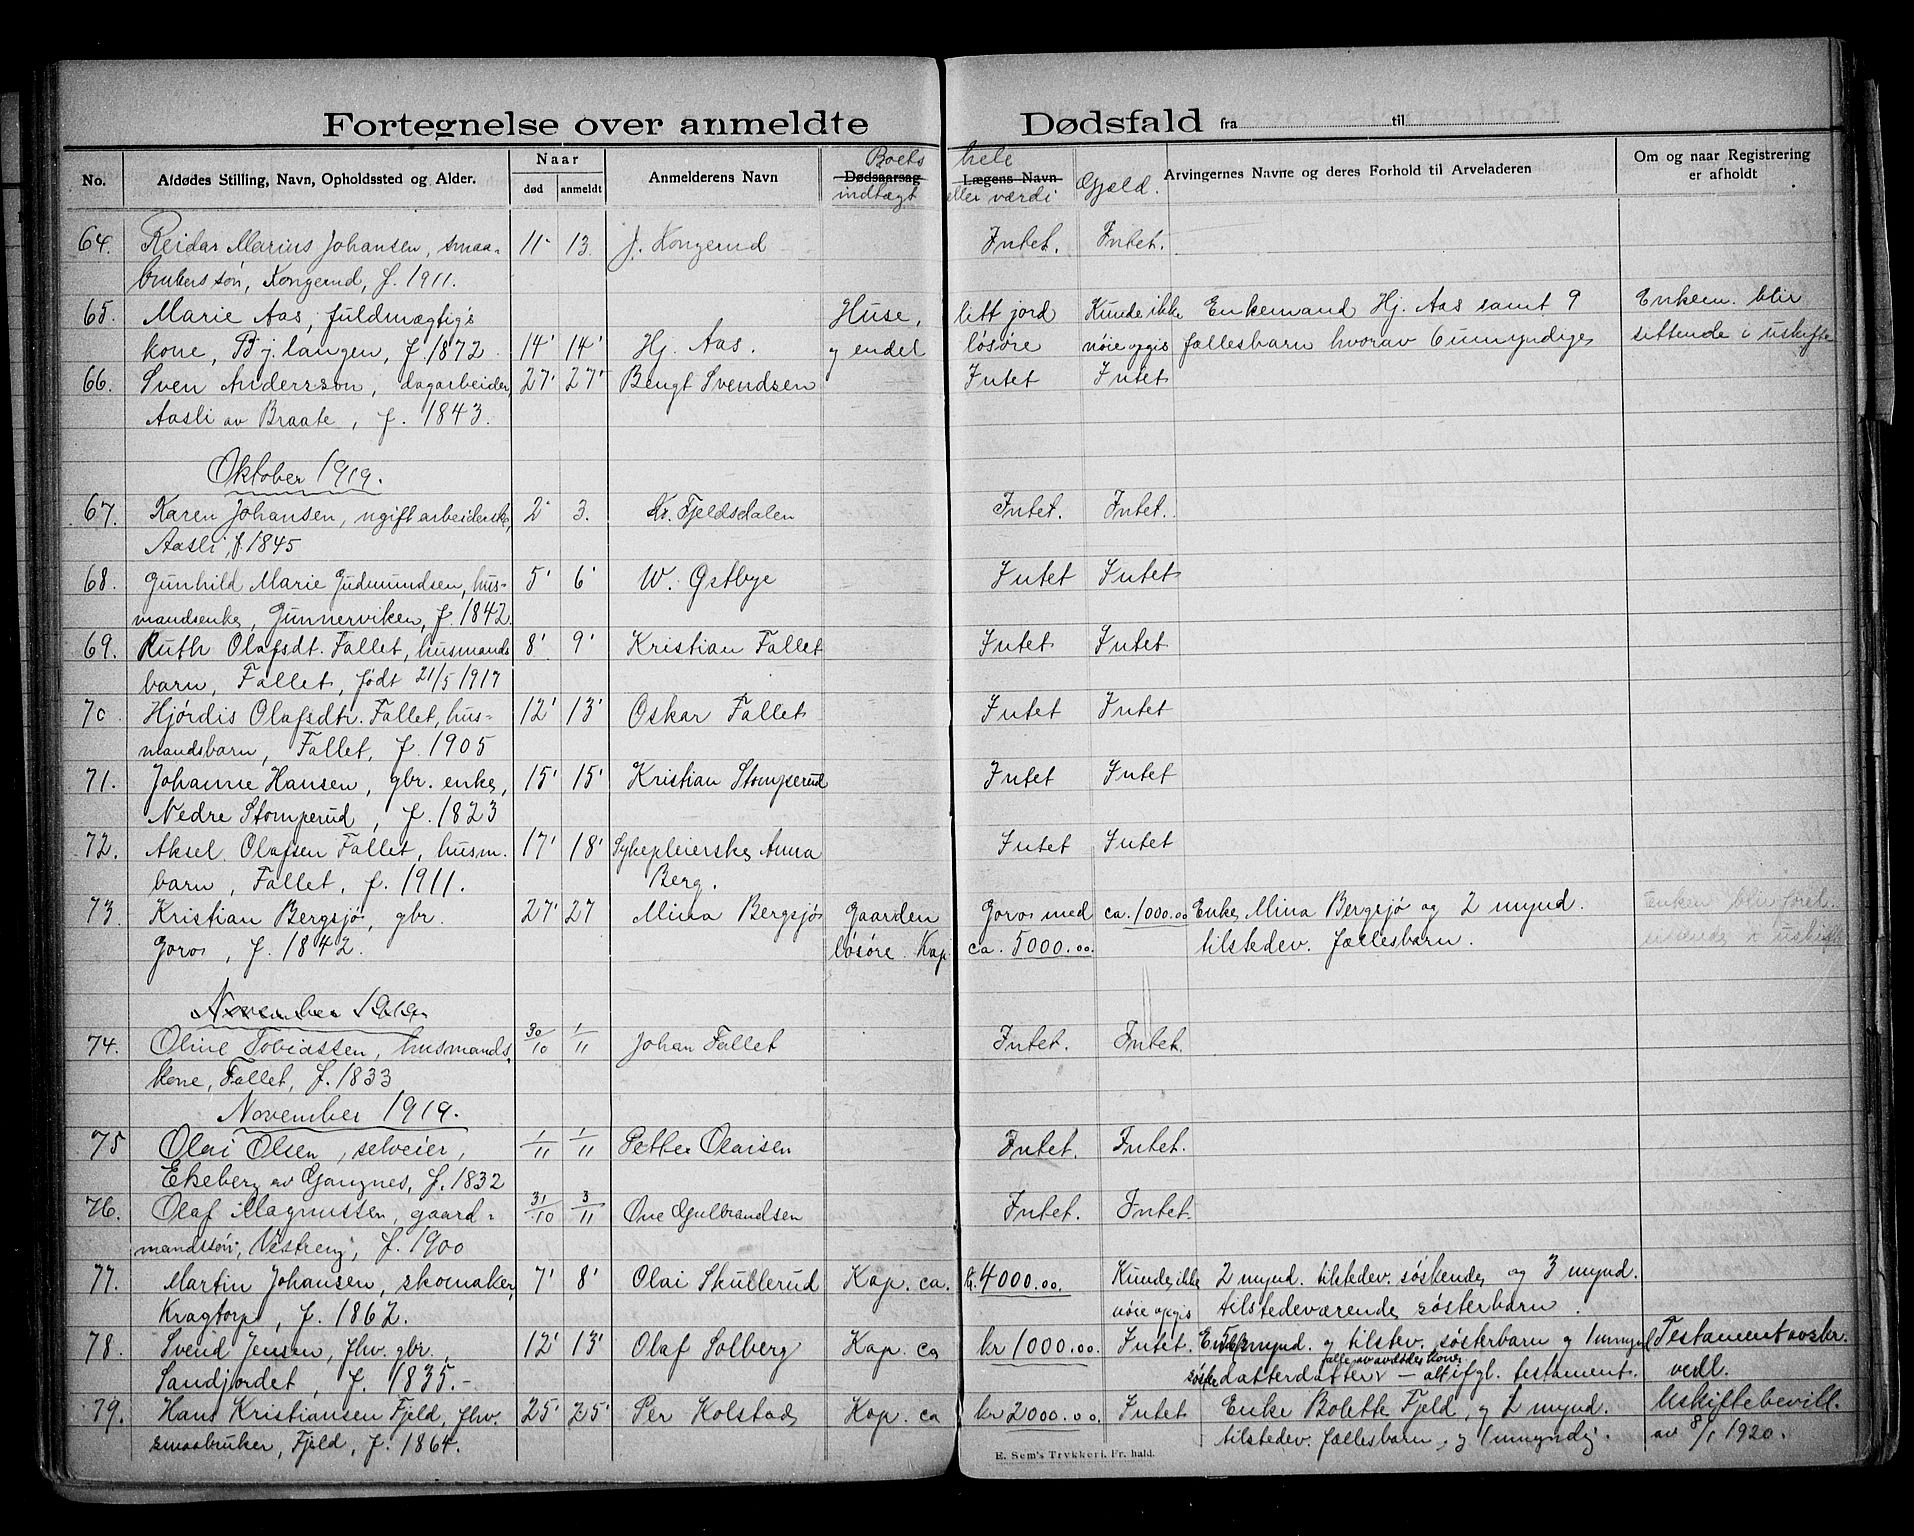 Fortegnelse over anmeldte Dødsfald fra til
No. Afdødes Stilling, Navn, Opholdssted og Alder. Naar død anmeldt Anmelderens Navn Dødsaarsag Lægens Navn Arvingernes Navne og deres Forhold til Arveladeren Om og naar Registrering er afholdt
Boets hele Gjæld.
indtægt eller værdi
64. Reidar Marius Johansen, smaa- 11' 13. J. Kongerud Intet. Intet.
brukers søn, Kongerud, f. 1911.
65. Marie Aas, fuldmægtigs Huse, litt jord Kunde ikke Enkemand Hj. Aas samt 9 Enkem. blir
kone, Bj.langen, f. 1872. 14' 14' Hj. Aas. og endel løsøre nøie opgis fællesbarn hvorav 6 umyndige sittende i uskifte
66. Sven Andersson, dagarbeider, 27' 27' Bengt Svendsen Intet Intet
Aasli av Braate, f. 1843.
Oktober 1919.
67. Karen Johansen, ugift arbeiderske, 2' 3. Kr. Fjeldsdalen Intet. Intet.
Aasli, f. 1845
68. Gunhild Marie Gudmundsen, hus- 5' 6' W. Østbye Intet Intet
mandsenke, Gunnerviken, f. 1842.
69. Ruth Olafsdt. Fallet, husmands 8' 9' Kristian Fallet Intet Intet
barn, Fallet, født 21/5 1917
70. Hjørdis Olafsdtr. Fallet, hus- 12' 13' Oskar Fallet Intet Intet
mandsbarn, Fallet, f. 1905
71. Johanne Hansen, gbr. enke, 15' 15' Kristian Stomperud Intet Intet
Nedre Stomperud, f. 1823
72. Aksel Olafsen Fallet, husm. 17' 18' Sykepleierske Anna Intet Intet
barn, Fallet, f. 1911. Berg.
73. Kristian Bergsjø, gbr. 27' 27 Mina Bergsjø Gaarden Goros med ca. 1000.00 Enke Mina Bergsjø og 2 mynd. Enken blir
Goros, f. 1842. løsøre. Kap ca. 5000.00. tilstedev. fællesbarn. uskifte
November 1919
74. Oline Tobiassen, husmands- 30/10 1/11 Johan Fallet Intet. Intet.
kone, Fallet, f. 1833
November 1919.
75 Olai Olsen, selveier, 1/11 1/11 Petter Olaisen Intet. Intet.
Ekeberg av Gangnes, f. 1832
76. Olaf Magnussen, gaard- 31/10 3/11 Ove Gulbrandsen Intet. Intet.
mandssøn, Vestreng, f. 1900
77. Martin Johansen, skomaker, 7' 8' Olai Skullerud Kap. ca. kr. 4000.00. Kunde ikke 2 mynd. tilstedev. søskende og 3 mynd.
Kragtorp, f. 1862. nøie opgis tilstedeværende søsterbarn.
78. Svend Jensen, fhv. gbr., 12' 13' Olaf Solberg Kap. ca kr 1000.00. Intet. mynd. og tilstev. søsterbarn og 1 umynd Testament overkr.
Sandjordet, f. 1835.- søster datterdatter alle av avdødes kone - alt ifgl. testament. vedl.
79. Hans Kristiansen Fjeld, fhv. 25' 25' Per Kolstad Kap. ca kr 2000.00. Intet Enke Bolette Fjeld, og 2 mynd. Uskiftebevill.
smaabruker, Fjeld, f. 1864. tilstedev. fællesbarn, og 1 umyndig. av 8/1 1920.
E. Sem's Trykkeri. Fr. hald.